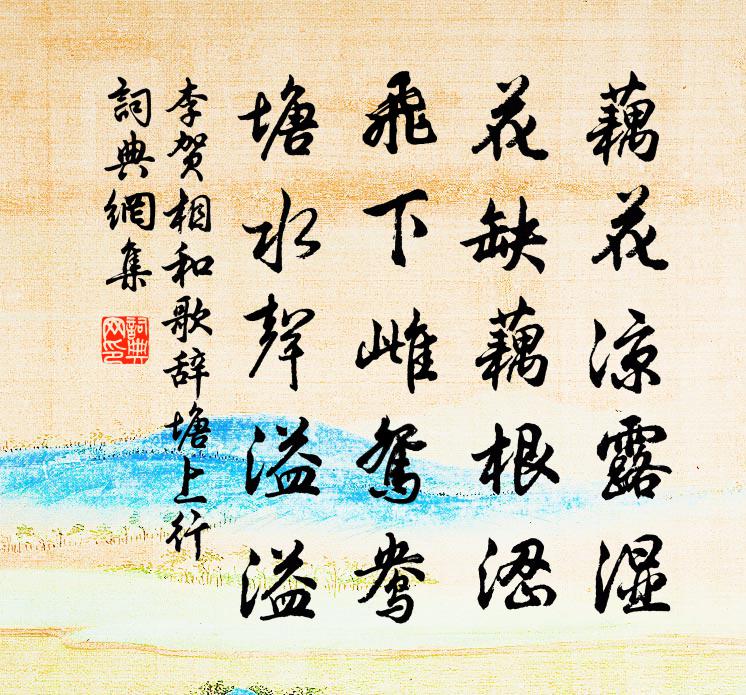 藕花涼露湿
花缺藕根涩
飛下雌鴛鴦
塘水聲溢溢
李贺相和歌辞塘上行
詞典網集
詞典网印